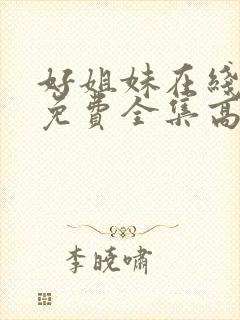 好姐妹在线
免费全集高
李晓啸